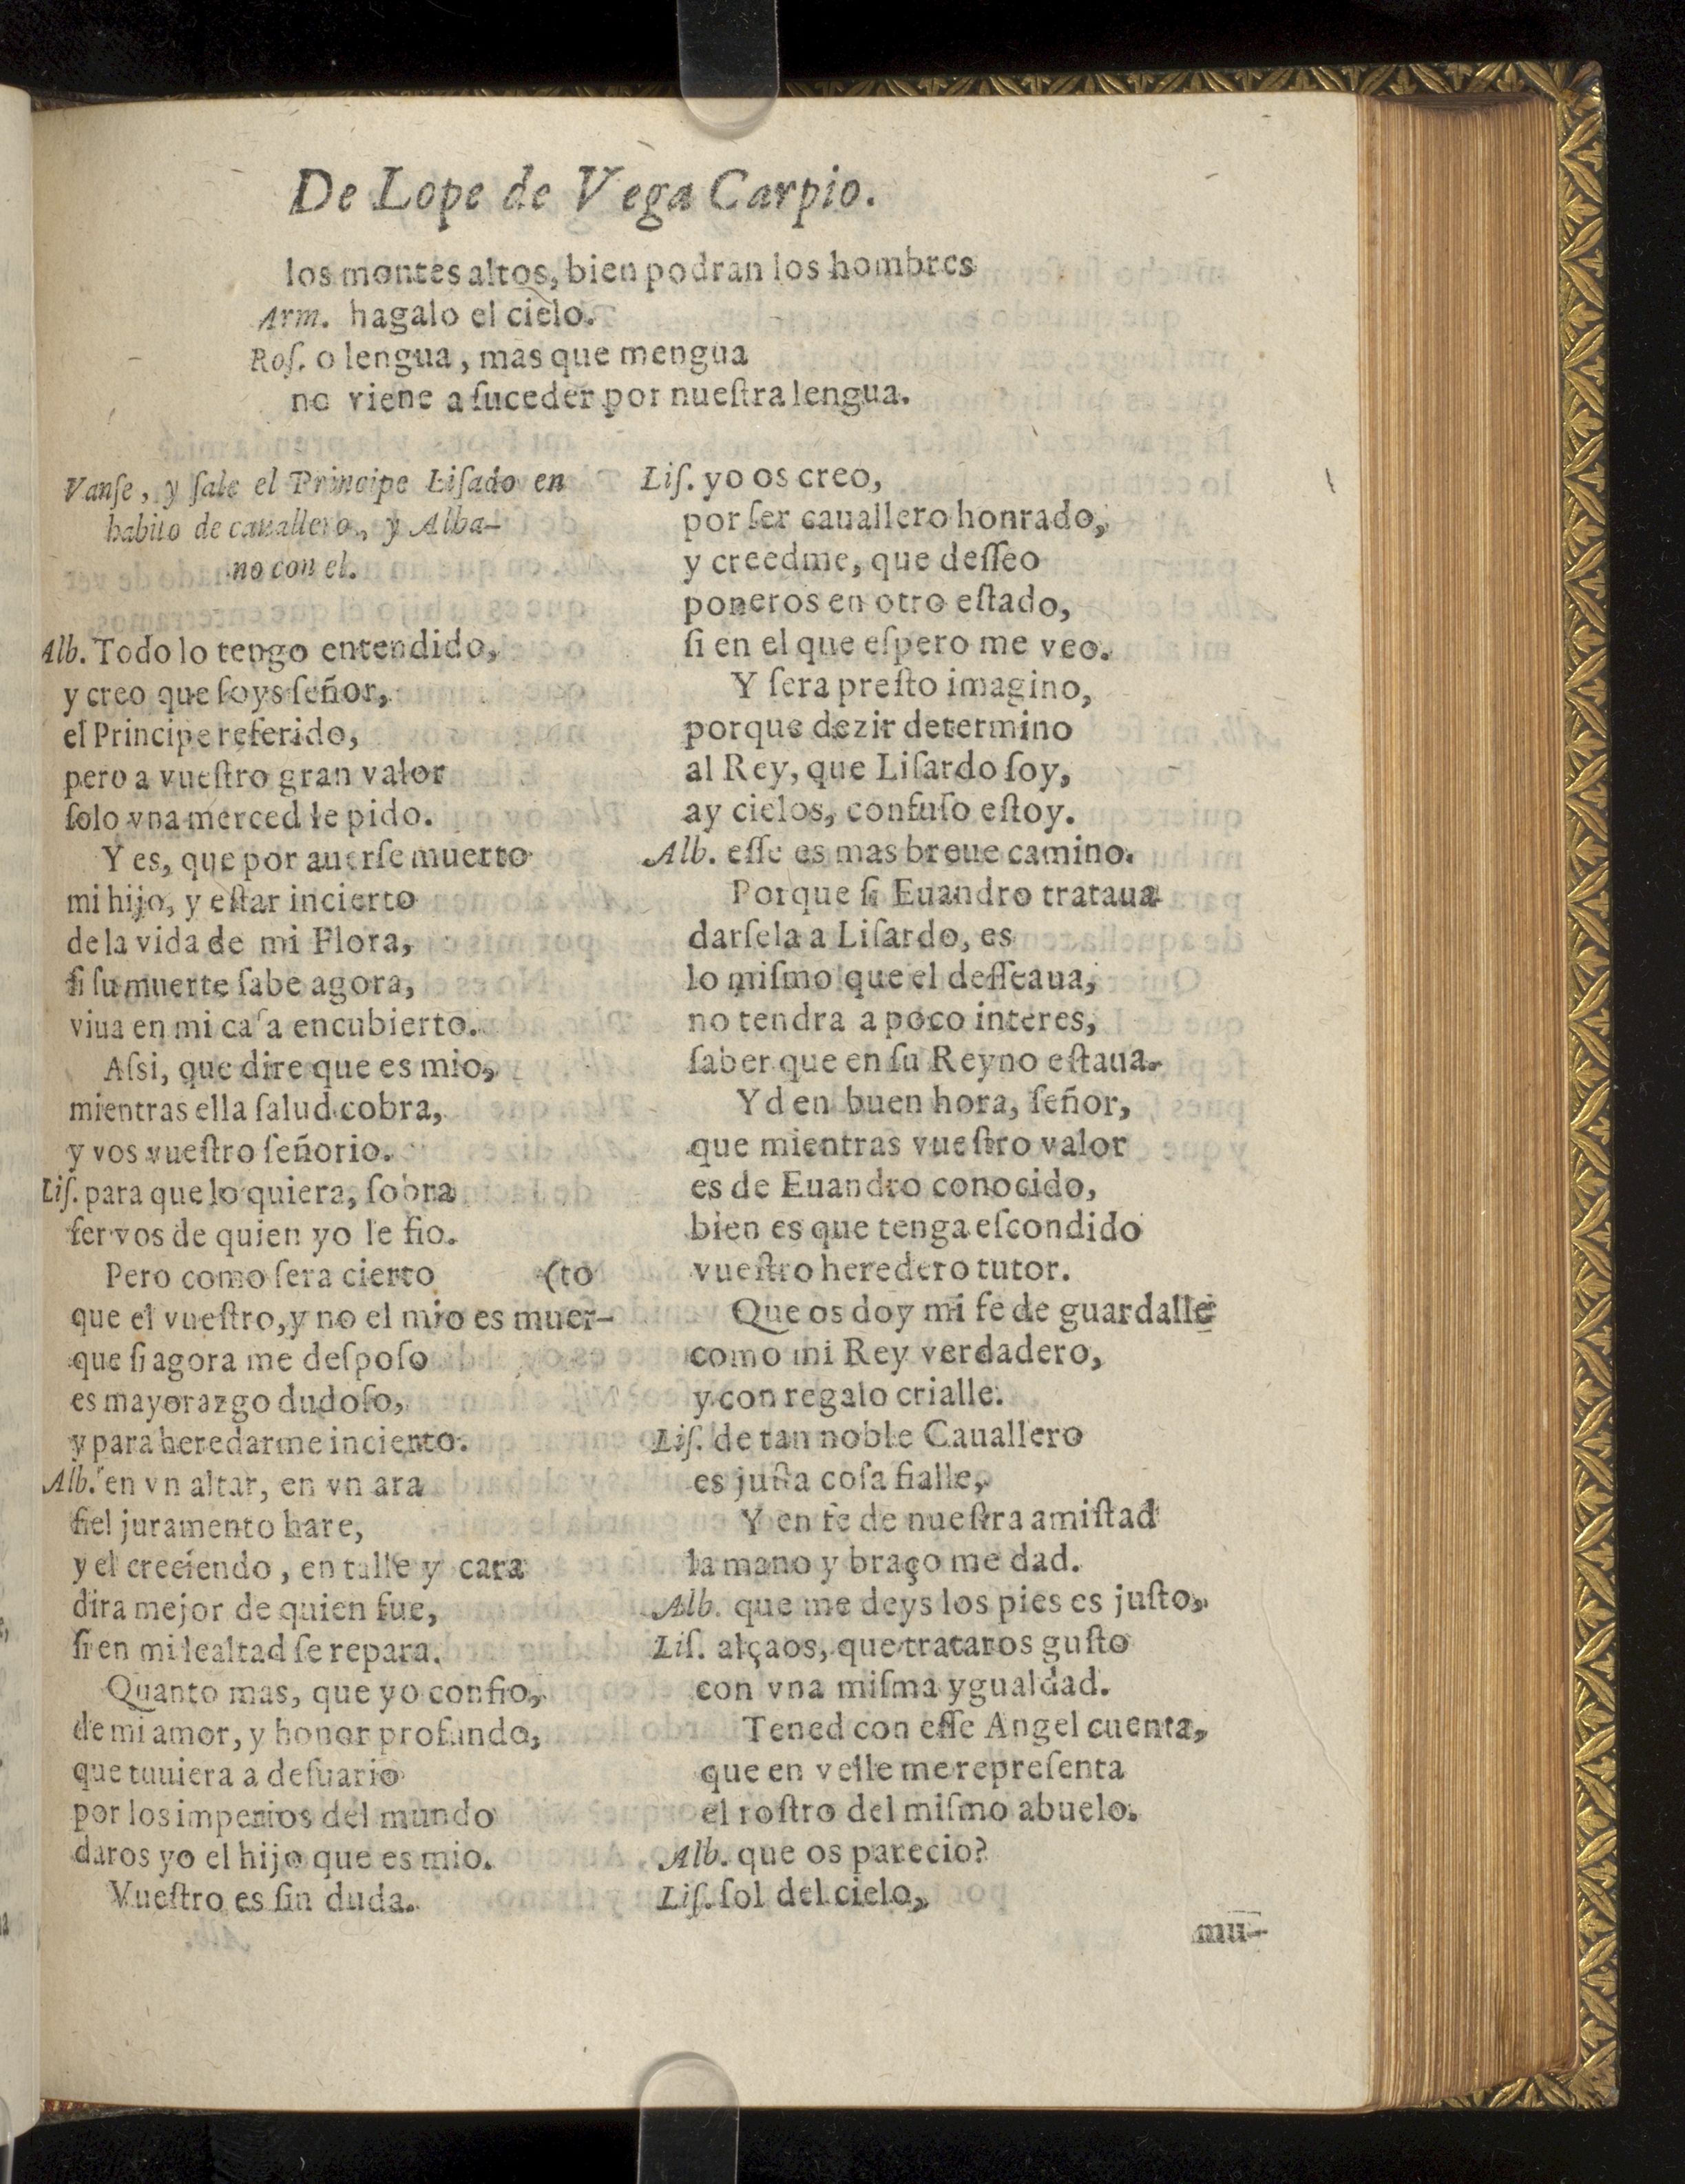 De Lope de Vega Carpio.
los montes altos, bien podran los hombres
Arm. hagalo el cielo.
Roſ. o lengua, mas que mengua
no viene a ſuceder por nueſtra lengua.
Vanſe, y ſale el Principe Liſado en
habito de cauallero, y Alba-
no con el.
Alb. Todo lo tengo entendido,
y creo que ſoys ſeñor,
el Principe referido,
pero a vueſtro gran valor
ſolo vna merced le pido.
Y es, que por auerſe muerto
mi hijo, y eſtar incierto
de la vida de mi Flora,
ſi ſu muerte ſabe agora,
viua en mi caſa encubierto.
Aſsi, que dire que es mio,
mientras ella ſalud cobra,
y vos vueſtro ſeñorio.
Liſ. para que lo quiera, ſobra
ſer vos de quien yo le fio.
Pero como ſera cierto (to
que el vueſtro, y no el mio es muer-
que ſi agora me deſpoſo
es mayorazgo dudoſo,
y para heredarme incierto.
Alb. en vn altar, en vn ara
fiel juramento hare,
y el creciendo, en talle y cara
dira mejor de quien fue,
ſi en mi lealtad ſe repara.
Quanto mas, que yo confio,
de mi amor, y honor profundo,
que tuuiera a deſuario
por los imperios del mundo
daros yo el hijo que es mio.
Vueſtro es ſin duda.
Liſ. yo os creo,
por ſer cauallero honrado,
y creedme, que deſſeo
poneros en otro eſtado,
ſi en el que eſpero me veo.
Y ſera preſto imagino,
porque dezir determino
al Rey, que Liſardo ſoy,
ay cielos, confuſo eſtoy.
Alb. eſſe es mas breue camino.
Porque ſi Euandro trataua
darſela a Liſardo, es
lo miſmo que el deſſeaua,
no tendra a poco interes,
ſaber que en ſu Reyno eſtaua.
Yd en buen hora, ſeñor,
que mientras vueſtro valor
es de Euandro conocido,
bien es que tenga eſcondido
vueſtro heredero tutor.
Que os doy mi fe de guardalle
como mi Rey verdadero,
y con regalo crialle.
Liſ. de tan noble Cauallero
es juſta coſa fialle,
Y en fe de nueſtra amiſtad
la mano y braço me dad.
Alb. que me deys los pies es juſto,
Liſ. alçaos, que trataros guſto
con vna miſma ygualdad.
Tened con eſſe Angel cuenta,
que en velle me repreſenta
el roſtro del miſmo abuelo.
Alb. que os parecio?
Liſ. ſol del cielo,
mu-